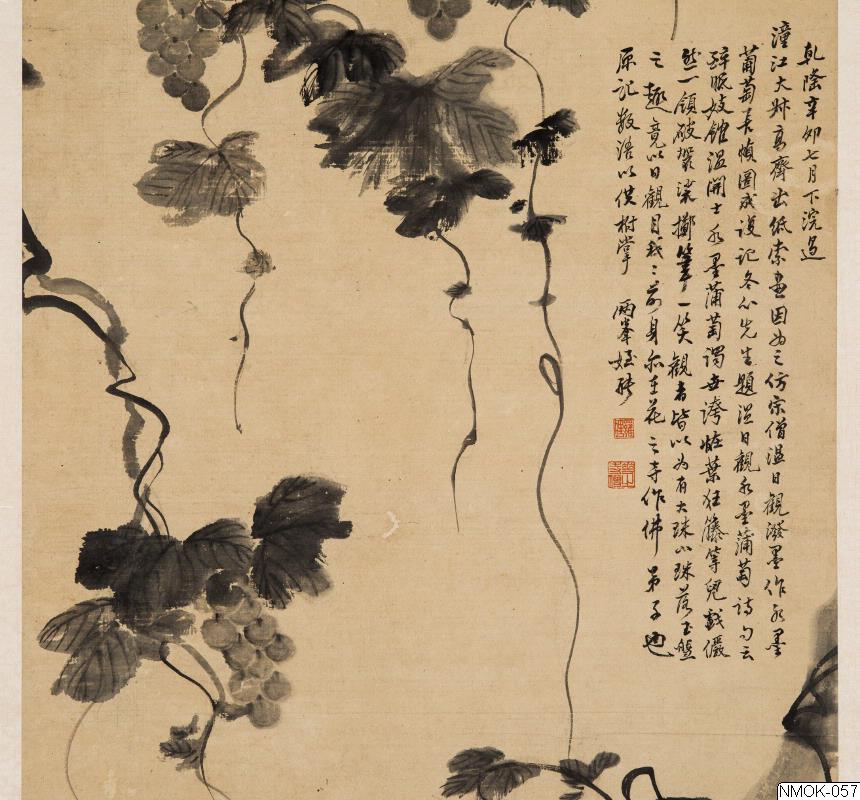 乾隆辛卯七月下浣過
潼江大妹高齋出紙索畫因為之仿宗僧温日觀潑墨作水墨
葡萄長幀圖成漫記冬心先生題温日觀水墨蒲萄詩句云
醉眠妓館温開士水墨蒲萄謂世誇怪葉狂藤等兒戲儼
然一領破袈裟擲筆一笑觀者皆以為有大珠小珠落玉盤
之趣竟以日觀目我我前身亦在花之寺作佛弟子也
原記數語以供拊掌 兩峯
NMOK-057